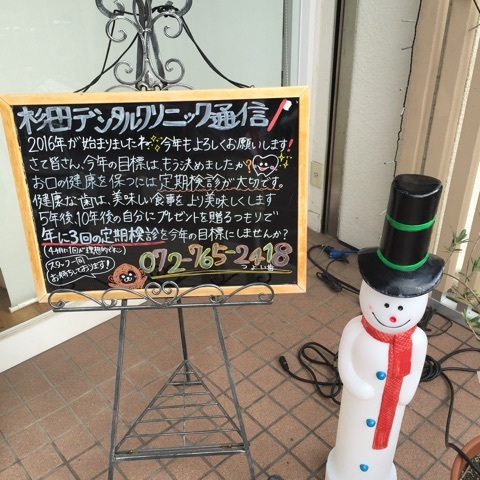 杉田デンタルクリニック通信
2016年が始まりましたね 今年もよろしくお願いします!
さて皆さん、今年の目標はもう決めましたか?
お口の健康を保つには定期検診が大切です。
健康な歯は、美味しい食事をより美味しくします
5年後、10年後の自分にプレゼントを贈るつもりで
年に3回の定期検診を今年の目標にしませんか?
(4ヶ月に1回が理想的です)
スタッフ一同
お待ちしております!
072-765-2418
つよい歯